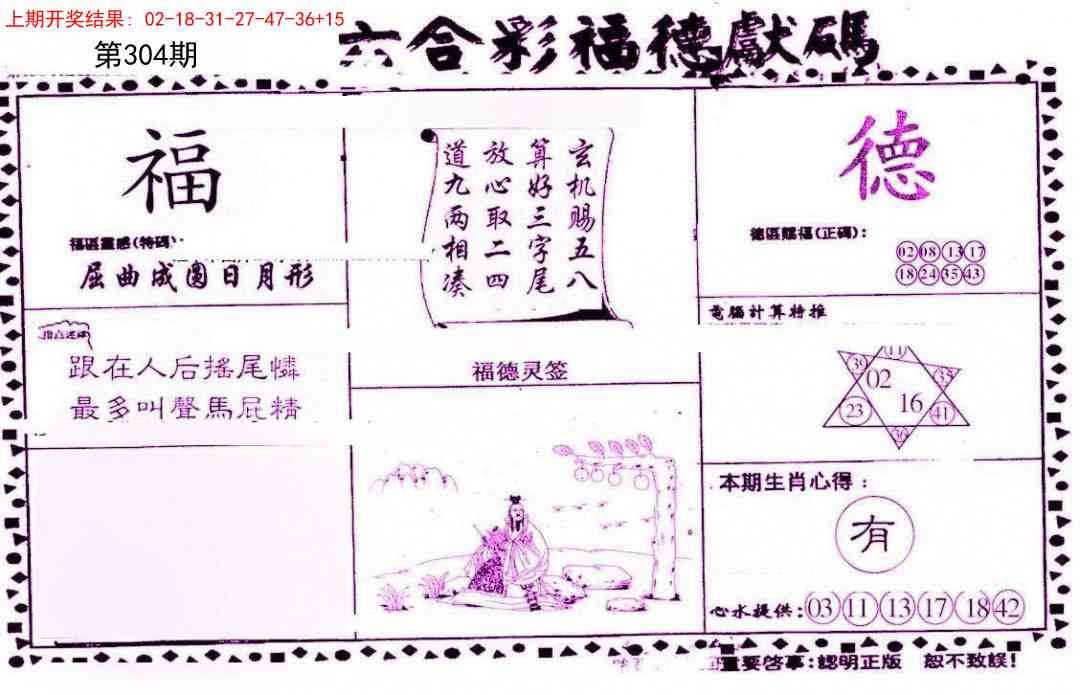 上期开奖结果：02-18-31-27-47-36+15
第304期
六合彩福德獻碼
福
福區靈感(特碼)：
屈曲成圓日月形
跟在人后搖尾憐
最多叫聲馬屁精
玄机赐五八
算好三字尾
放心取二四
道九两相凑
福德灵签
德
德區賜福(正碼)：
02 08 13 17
18 24 35 43
電腦計算特推
11
39 02 35
23 16 41
36
本期生肖心得：
有
心水提供：03 11 13 17 18 42
重要啓事：認明正版 恕不致誤！